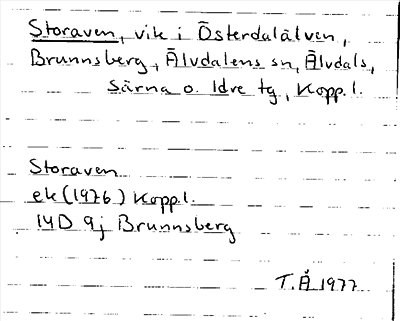 Storaven, vik i Österdalälven,
Brunnsberg, Älvdalens sn, Älvdals,
Särna o. Idre tg, Kopp.l.
Storaven
ek (1976) Kopp.l.
14D 9j Brunnsberg
T.Å 1977